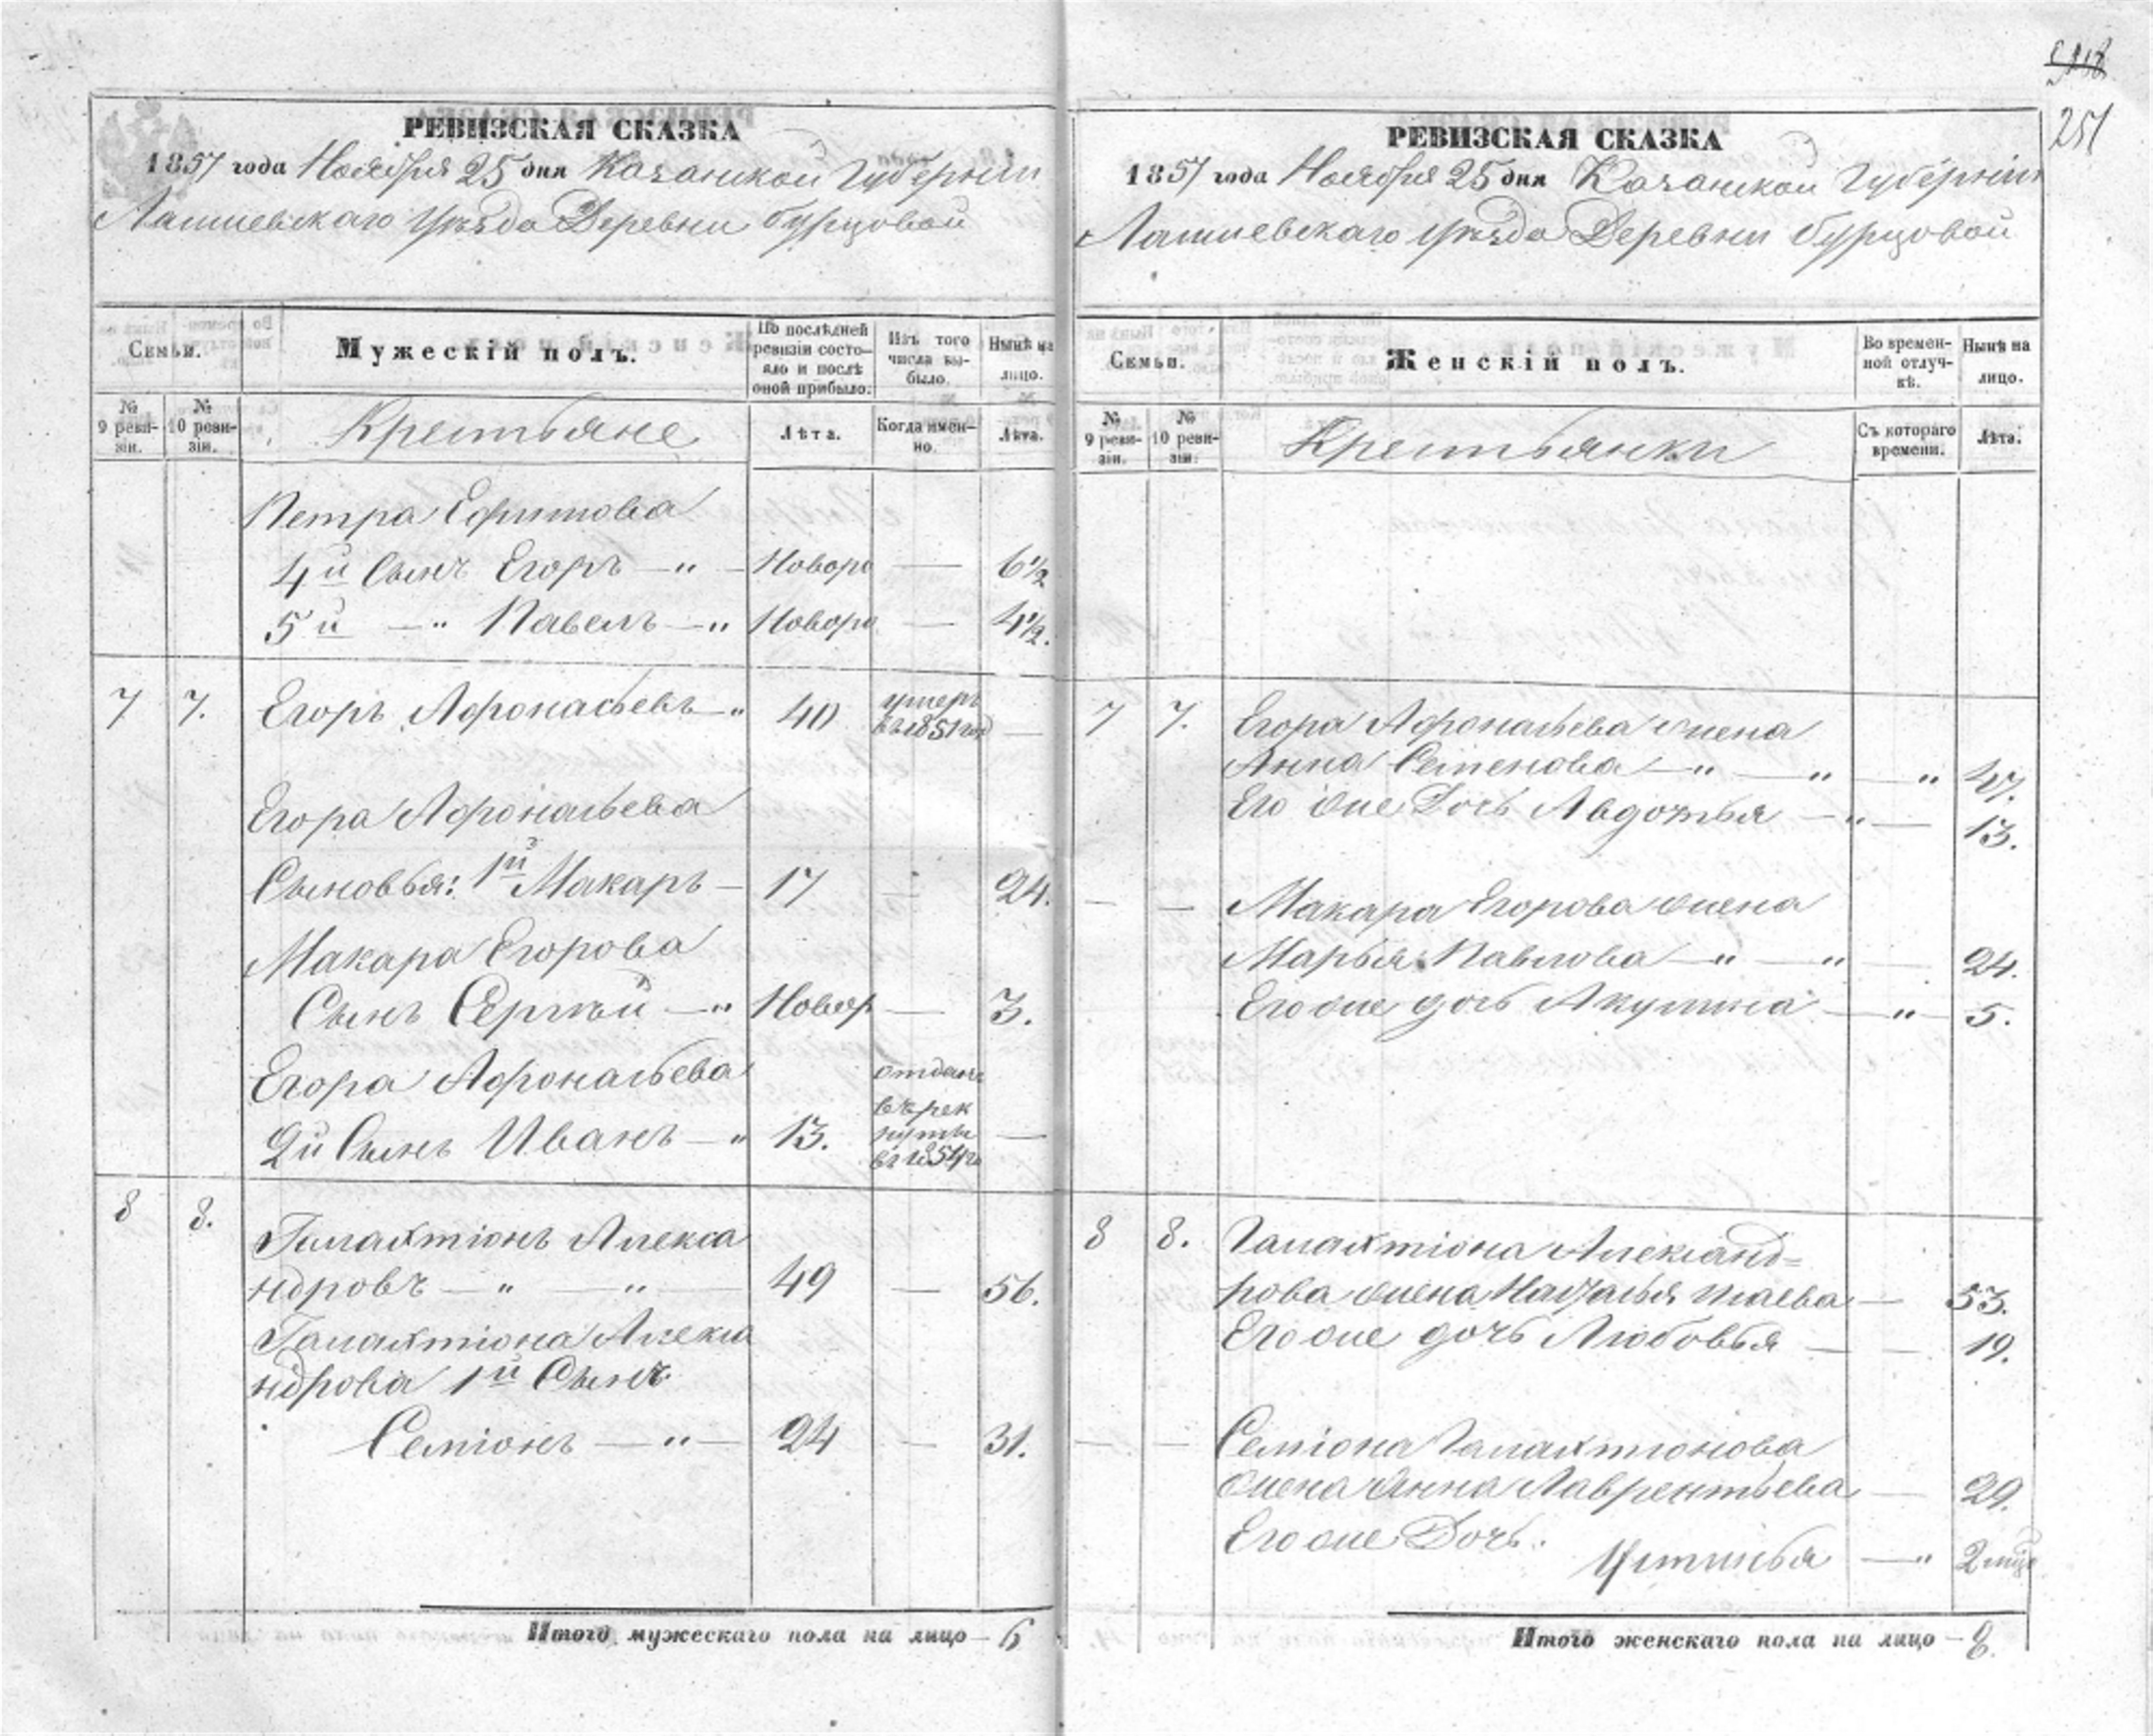 248
251
РЕВИЗСКАЯ СКАЗКА
1857 года Ноября 25 дня Казанской Губерніи
Лаишевскаго Уѣзда Деревни Бурцовой
Семьи.
Мужескій полъ.
По послѣдней ревизіи состояло и послѣ оной прибыло.
Изъ того числа выбыло.
Нынѣ на лицо.
№ 9 ревизіи.
№ 10 ревизіи.
Крестьяне
Лѣта.
Когда именно.
Лѣта.
Петра Ефимова
4й Сынъ Егоръ — „ — Новоро — 6½
5й — „ Павелъ — „ Новоро — 4½.
7 7. Егоръ Афонасьевъ „ 40 умеръ въ 1851 год —
Егора Афонасьева
Сыновья: 1й Макаръ — 17 — 24.
Макара Егорова
Сынъ Сергѣй — „ Новор — 3.
Егора Афонасьева
2й Сынъ Иванъ — „ 13. отданъ въ рекруты въ 1854го —
8 8. Галахтіонъ Алекса
ндровъ — „ — „ — 49 — 56.
Галахтіона Алекса
ндрова 1й Сынъ
Семіонъ — „ — 24 — 31.
Итого мужескаго пола на лицо — 6
РЕВИЗСКАЯ СКАЗКА
1857 года Ноября 25 дня Казанской Губерніи
Лаишевскаго Уѣзда Деревни Бурцовой
Семьи.
Женскій полъ.
Во временной отлучкѣ.
Нынѣ на лицо.
№ 9 ревизіи.
№ 10 ревизіи.
Крестьянки
Съ котораго времени.
Лѣта.
7 7. Егора Афонасьева жена
Анна Семенова — „ — „ — „ 47.
Его же Дочь Авдотья — „ — 13.
— — Макара Егорова жена
Марья Павлова — „ — „ — 24.
Его же дочь Акулина — „ — 5.
8 8. Галахтіона Александ=
рова жена Наталья — 53.
Его же дочь Любовья — — 19.
— — Семіона Галахтіонова
жена Анна Лаврентьева — 29.
Его же Дочь.
Устинья — „ 2
Итого женскаго пола на лицо — 8.